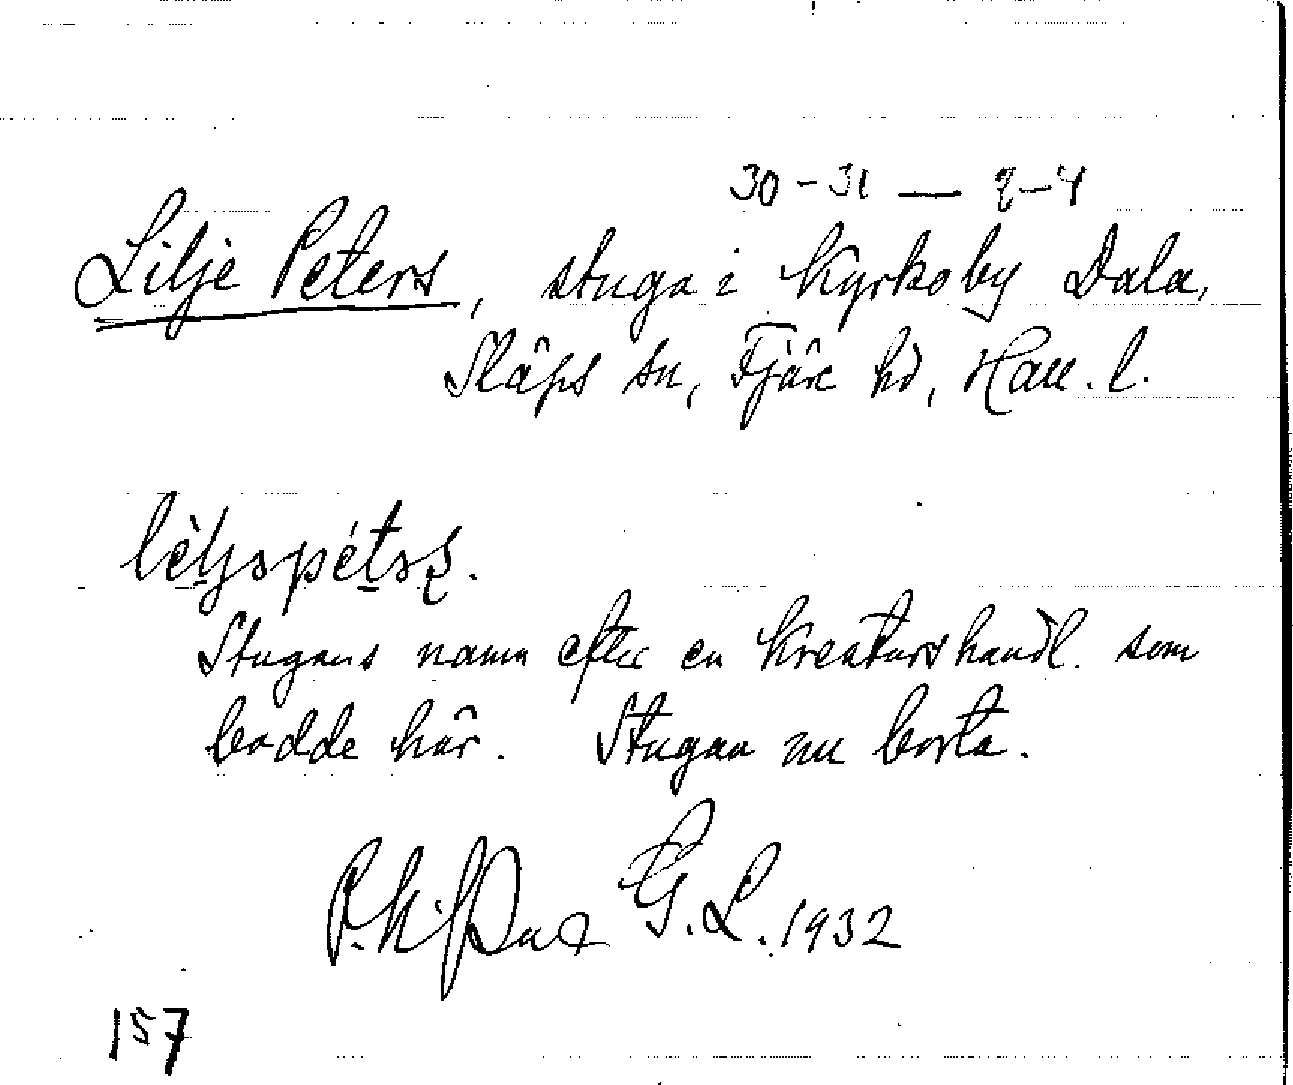 30-31 — 2-4
Lilje Peters, stuga i Kyrkoby Dala,
Släps sn, Fjäre hd, Hall. l.
Stugans namn efter en kreaturshandl. som
bodde här. Stugan nu borta.
G. L. 1932
157